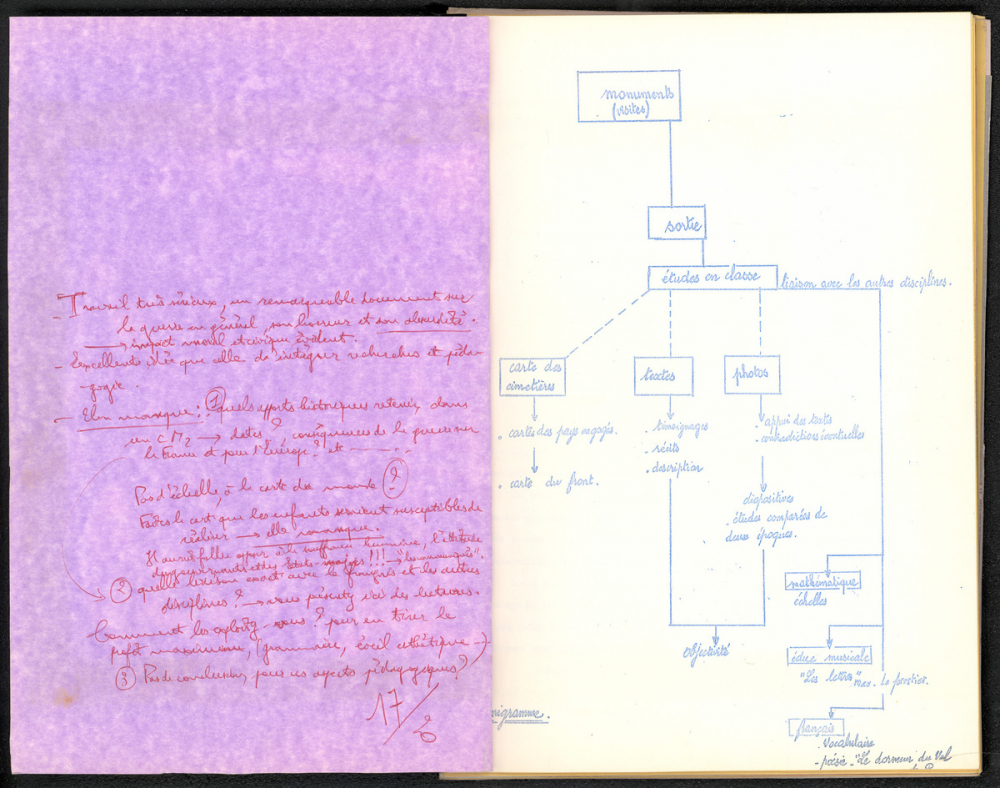 - Travail très sérieux, un remarquable document sur
la guerre en général, son horreur et son absurdité.
→ impact moral et civique évident.
- Excellente idée que celle d'intégrer recherches et péda-
gogie.
- Elém manque : ① quels apports historiques retenir dans
un CM2 → dates ?, conséquences de la guerre sur
la France et pour l'Europe ? etc
Pas d'échelle, à la carte du monde ?
Faites la carte que les enfants seraient susceptibles de
réaliser → elle manque.
Il aurait fallu opposer à la souffrance humaine, l'attitude
des états-majors !!! →
② quelle liaison exacte avec le français et les autres
disciplines ? → vous présentez ici des lectures.
Comment les exploitez-vous ? pour en tirer le
profit maximum, (grammaire, éveil esthétique
③ Pas de conclusion pour ces aspects pédagogiques ?
17/20
monuments
(visites)
sortie
études en classe
liaison avec les autres disciplines.
carte des
cimetières
textes
photos
. cartes des pays engagés.
. carte du front.
. témoignages
. récits
. description
. appui des textes
. contradictions éventuelles
diapositives
. études comparées de
deux époques.
objectivité
mathématique
échelles
éduc musicale
"Les lettres" Max. Le Forestier.
français
. vocabulaire
- poésie . "Le dormeur du Val
nigramme.